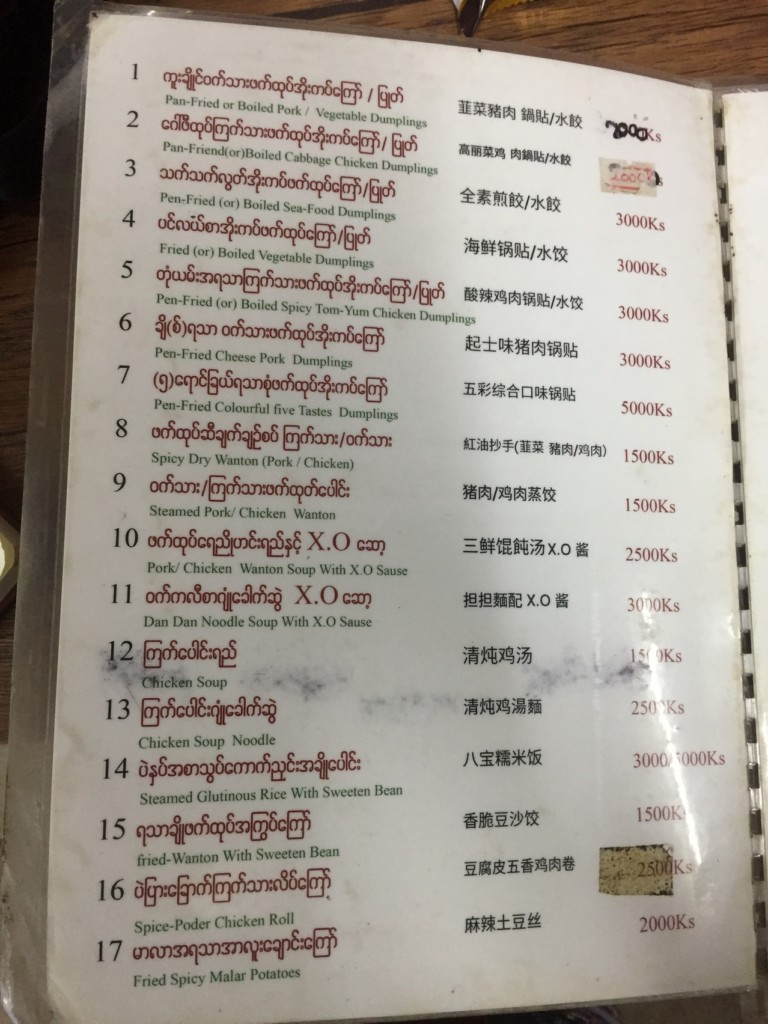 1 ကူးချိုင်ဝက်သားဖက်ထုပ်အိုးကပ်ကြော် / ပြုတ်
Pan-Fried or Boiled Pork / Vegetable Dumplings
韮菜豬肉 鍋貼/水餃 Ks
2 ဂေါ်ဖီထုပ်ကြက်သားဖက်ထုပ်အိုးကပ်ကြော်/ ပြုတ်
Pan-Friend(or)Boiled Cabbage Chicken Dumplings
高丽菜鸡 肉鍋貼/水餃
3 သက်သက်လွတ်အိုးကပ်ဖက်ထုပ်ကြော်/ပြုတ်
Pen-Fried (or) Boiled Sea-Food Dumplings
全素煎餃/水餃 3000Ks
4 ပင်လယ်စာအိုးကပ်ဖက်ထုပ်ကြော်/ပြုတ်
Fried (or) Boiled Vegetable Dumplings
海鲜锅贴/水饺 3000Ks
5 တုံယမ်းအရသာကြက်သားဖက်ထုပ်အိုးကပ်ကြော်/ပြုတ်
Pen-Fried (or) Boiled Spicy Tom-Yum Chicken Dumplings
酸辣鸡肉锅贴/水饺 3000Ks
6 ချိ(စ်)ရသာ ဝက်သားဖက်ထုပ်အိုးကပ်ကြော်
Pen-Fried Cheese Pork Dumplings
起士味猪肉锅贴 3000Ks
7 (၅)ရောင်ခြယ်ရသာစုံဖက်ထုပ်အိုးကပ်ကြော်
Pen-Fried Colourful five Tastes Dumplings
五彩综合口味锅贴 5000Ks
8 ဖက်ထုပ်ဆီချက်ချဉ်စပ် ကြက်သား/ဝက်သား
Spicy Dry Wanton (Pork / Chicken)
紅油抄手(韮菜 豬肉/鸡肉) 1500Ks
9 ဝက်သား/ကြက်သားဖက်ထုတ်ပေါင်း
Steamed Pork/ Chicken Wanton
猪肉/鸡肉蒸饺 1500Ks
10 ဖက်ထုပ်ရေညှိဟင်းရည်နှင့် X.O ဆော့
Pork/ Chicken Wanton Soup With X.O Sause
三鲜馄飩汤 X.O 酱 2500Ks
11 ဝက်ကလီစာဂျုံခေါက်ဆွဲ X.O ဆော့
Dan Dan Noodle Soup With X.O Sause
担担麵配 X.O 酱 3000Ks
12 ကြက်ပေါင်းရည်
Chicken Soup
清炖鸡汤 1500Ks
13 ကြက်ပေါင်းဂျုံခေါက်ဆွဲ
Chicken Soup Noodle
清炖鸡湯麵 2500Ks
14 ပဲနှပ်အစာသွပ်ကောက်ညှင်းအချိုပေါင်း
Steamed Glutinous Rice With Sweeten Bean
八宝糯米饭 3000/5000Ks
15 ရသာချိုဖက်ထုပ်အကြွပ်ကြော်
fried-Wanton With Sweeten Bean
香脆豆沙饺 1500Ks
16 ပဲပြားခြောက်ကြက်သားလိပ်ကြော်
Spice-Poder Chicken Roll
豆腐皮五香鸡肉卷 2500Ks
17 မာလာအရသာအာလူးချောင်းကြော်
Fried Spicy Malar Potatoes
麻辣土豆丝 2000Ks